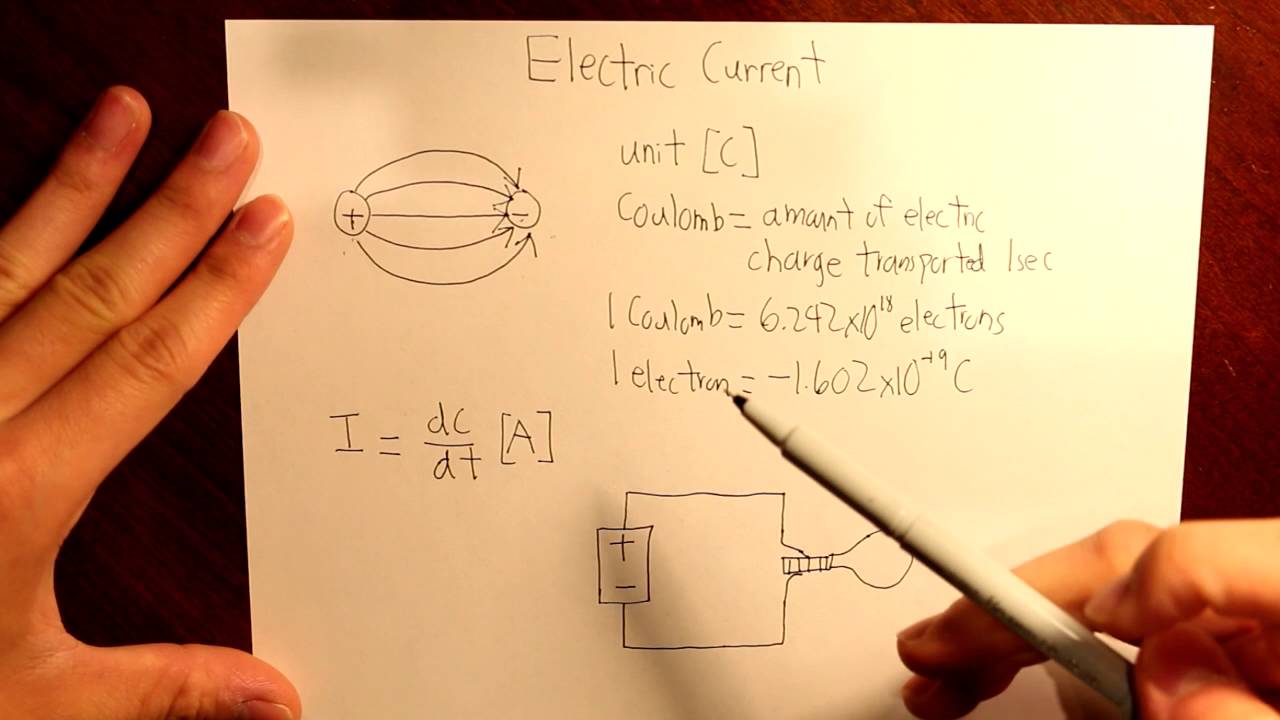 Electric Current
unit [C]
Coulomb = amount of electric
charge transported 1sec
1 Coulomb = 6.242x10^18 electrons
1 electron = -1.602x10^-19 C
+
-
I = dc/dt [A]
+
-